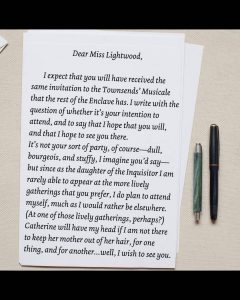 Dear Miss Lightwood,
I expect that you will have received the
same invitation to the Townsends' Musicale
that the rest of the Enclave has. I write with the
question of whether it's your intention to
attend, and to say that I hope that you will,
and that I hope to see you there.
It's not your sort of party, of course—dull,
bourgeois, and stuffy, I imagine you'd say—
but since as the daughter of the Inquisitor I am
rarely able to appear at the more lively
gatherings that you prefer, I do plan to attend
myself, much as I would rather be elsewhere.
(At one of those lively gatherings, perhaps?)
Catherine will have my head if I am not there
to keep her mother out of her hair, for one
thing, and for another...well, I wish to see you.